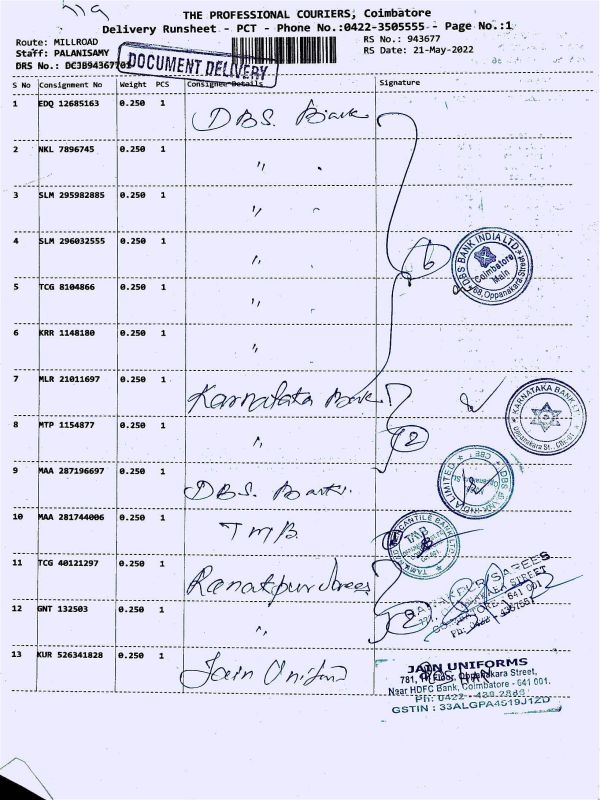 THE PROFESSIONAL COURIERS, Coimbatore
Delivery Runsheet - PCT - Phone No.:0422-3505555 - Page No.:1
Route: MILLROAD
RS No.: 943677
Staff: PALANISAMY
RS Date: 21-May-2022
DRS No.: DCJB94367701
DOCUMENT DELIVERY
S No Consignment No Weight PCS Consignee Details Signature
1 EDQ 12685163 0.250 1 DBS. Bank
2 NKL 7896745 0.250 1 "
3 SLM 295982885 0.250 1 "
4 SLM 296032555 0.250 1 "
6
DBS BANK INDIA LTD
Coimbatore
Main
68, Oppanakara Street
5 TCG 8104866 0.250 1 "
6 KRR 1148180 0.250 1 "
7 MLR 21011697 0.250 1 Karnataka Bank
KARNATAKA BANK LTD
Oppanakara St., CBE-01
8 MTP 1154877 0.250 1 "
2
9 MAA 287196697 0.250 1 DBS. Bank
DBS BANK INDIA LIMITED
CBET
10 MAA 281744006 0.250 1 TMB
MERCANTILE BANK LTD
TMB
11 TCG 40121297 0.250 1 Ranakpur Sarees
RANAKPUR SAREES
OPPANAKARA STREET
COIMBATORE - 641 001
Ph: 0422
12 GNT 132503 0.250 1 "
2
13 KUR 526341828 0.250 1 Jain Uniform
JAIN UNIFORMS
781, Floor, Oppanakara Street,
Near HDFC Bank, Coimbatore - 641 001.
Ph: 0422
GSTIN : 33ALGPA4519J1ZD